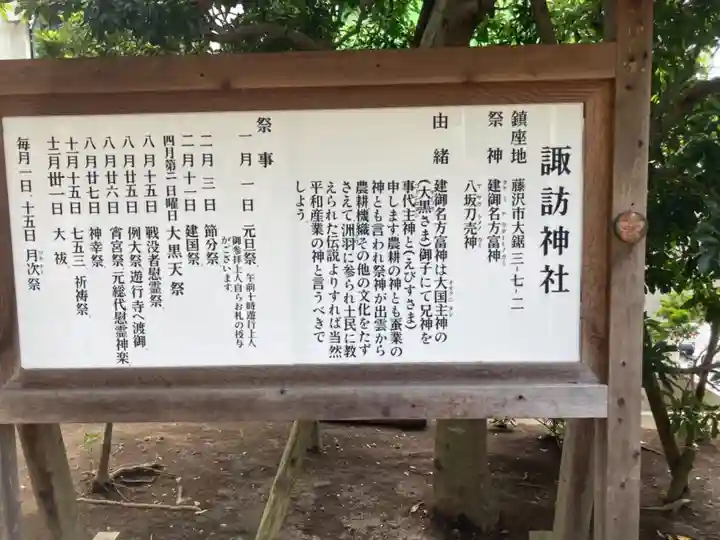 諏訪神社
鎮座地　藤沢市大鋸三-七-二
祭神　建御名方富神
八坂刀売神
由緒　建御名方富神は大国主神の
(大黒さま)御子にて兄神を
事代主神と(えびすさま)
申します農耕の神とも蚕業の
神とも言われ祭神が出雲から
農耕機織その他の文化をたず
さえて洲羽に参られ土民に教
えられた伝説よりすれば当然
平和産業の神と言うべきで
しよう
祭事
一月一日　元旦祭、午前十時遊行上人
御参拝上人自らお札の授与
がございます。
二月三日　節分祭、
二月十一日　建国祭、
四月第二日曜日　大黒天祭
八月十五日　戦没者慰霊祭、
八月廿五日　例大祭遊行寺へ渡御、
八月廿六日　宵宮祭元総代慰霊神楽
八月廿七日　神幸祭、
十一月十五日　七五三祈祷祭、
十二月卅一日　大祓、
毎月一日、十五日　月次祭、